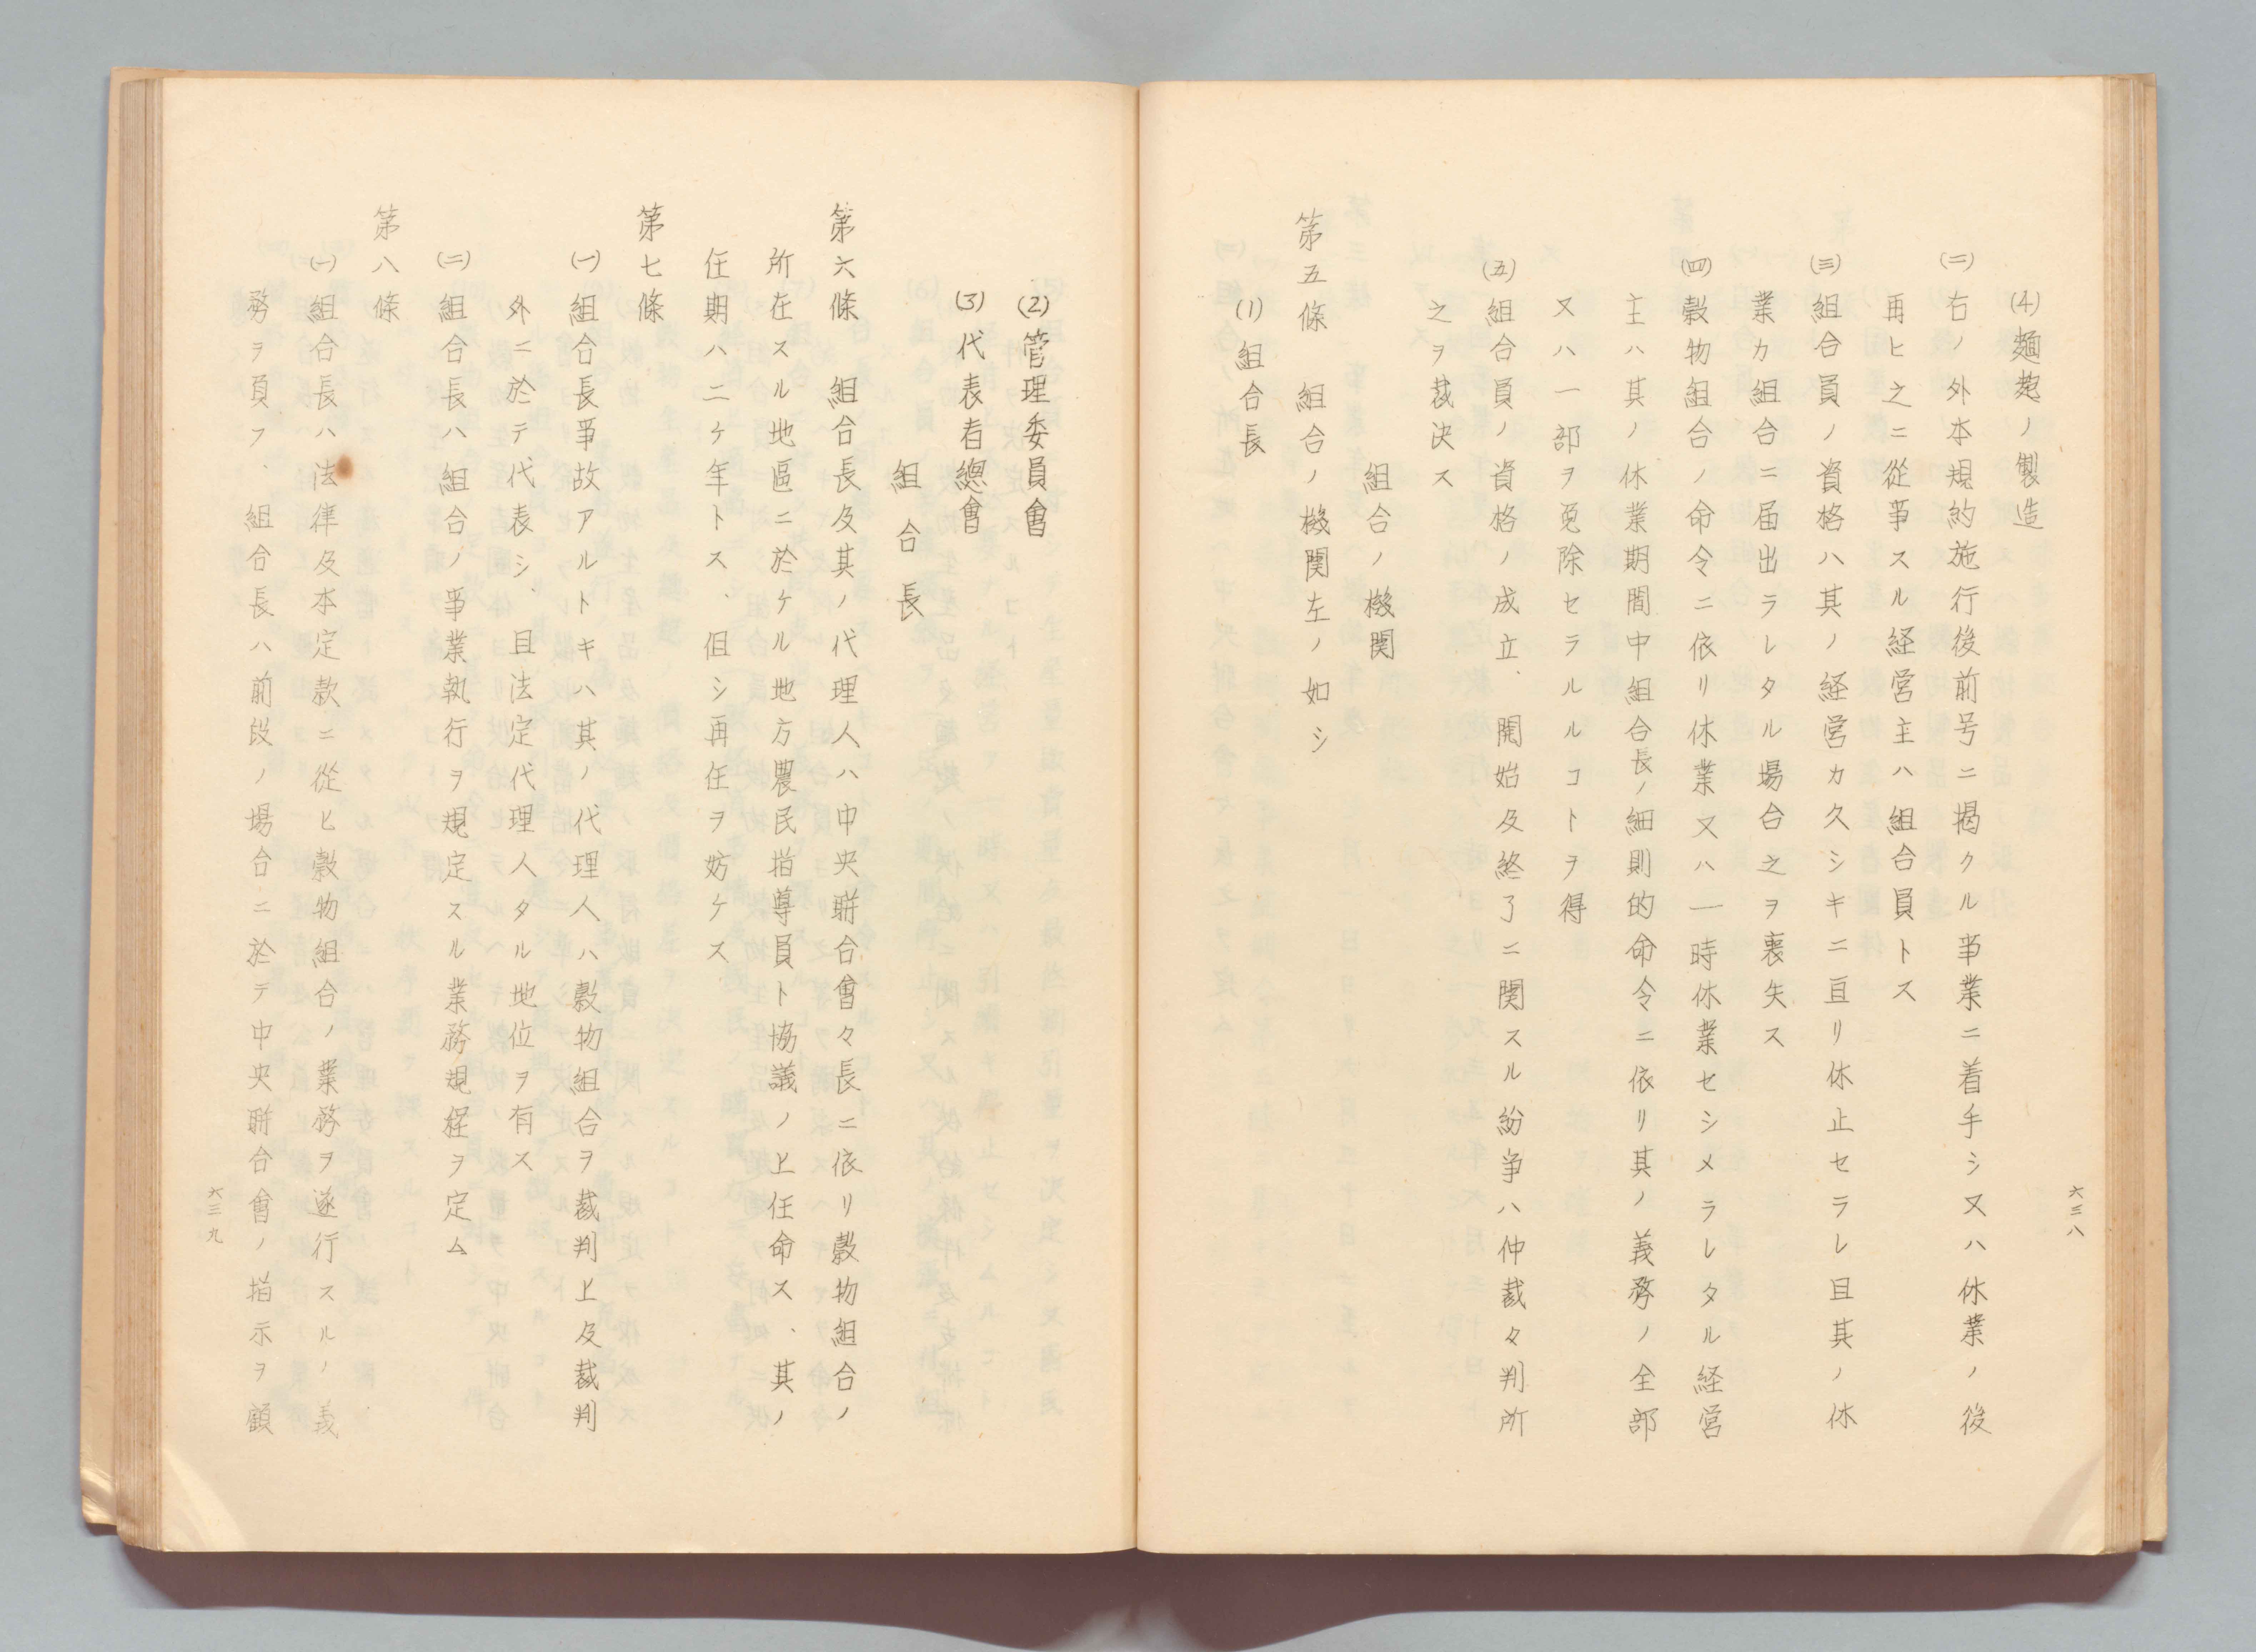 六三八
(4) 麺麭ノ製造
(二) 右ノ外本規約施行後前号ニ揭クル事業ニ着手シ又ハ休業ノ後
再ヒ之ニ從事スル経営主ハ組合員トス
(三) 組合員ノ資格ハ其ノ経営カ久シキニ亘リ休止セラレ且其ノ休
業カ組合ニ届出ラレタル場合之ヲ喪失ス
(四) 穀物組合ノ命令ニ依リ休業又ハ一時休業セシメラレタル経営
主ハ其ノ休業期間中組合長ノ細則的命令ニ依リ其ノ義務ノ全部
又ハ一部ヲ免除セラルルコトヲ得
(五) 組合員ノ資格ノ成立、開始及終了ニ関スル紛争ハ仲裁々判所
之ヲ裁決ス
組合ノ機関
第五條 組合ノ機関左ノ如シ
(1) 組合長
(2) 管理委員會
(3) 代表者總會
組合長
第六條 組合長及其ノ代理人ハ中央聯合會々長ニ依リ穀物組合ノ
所在スル地區ニ於ケル地方農民指導員ト協議ノ上任命ス、其ノ
任期ハ二ケ年トス、但シ再任ヲ妨ケス
第七條
(一) 組合長事故アルトキハ其ノ代理人ハ穀物組合ヲ裁判上及裁判
外ニ於テ代表シ、且法定代理人タル地位ヲ有ス
(二) 組合長ハ組合ノ事業執行ヲ規定スル業務規程ヲ定ム
第八條
(一) 組合長ハ法律及本定款ニ從ヒ穀物組合ノ業務ヲ遂行スルノ義
務ヲ負フ、組合長ハ前段ノ場合ニ於テ中央聯合會ノ指示ヲ顧
六三九